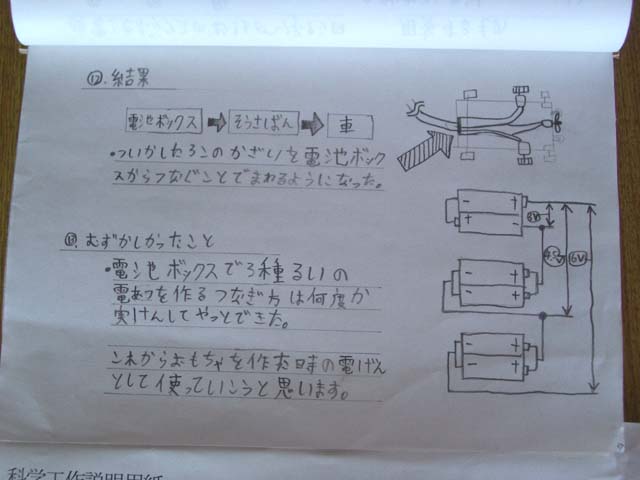 ⑫.結果
電池ボックス➡そうさばん➡車
・ついかした3このかざいを電池ボック
スからつなぐことでまわるようになった。
⑬.むずかしかったこと
・電池ボックスで3種るいの
電あつを作るつなぎ方は何度か
実けんしてやっとできた。
これからおもちゃを作た時の電げん
として使っていこうと思います。
- +
- +
- +
- +
- +
- +
6V
科学工作説明用紙